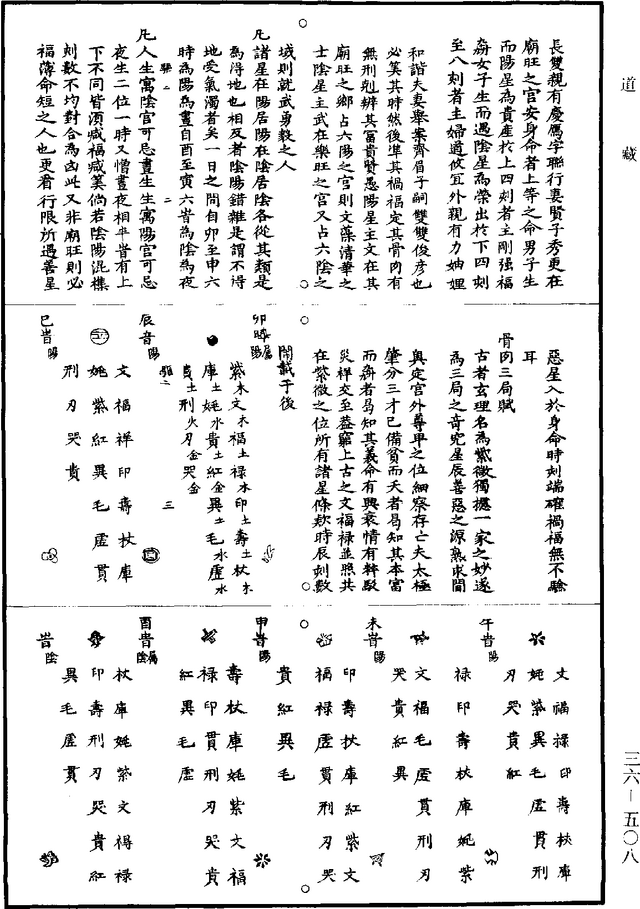 道藏
長雙親有慶鴈字聯行妻賢子秀更在
廟旺之宮安身命者上等之命男子生
而陽星為貴產於上四刻者主剛強福
劫女子生而遇陰星為榮出於下四刻
至八刻者主婦道攸宜外親有力妯娌
和諧夫妻舉案齊眉子嗣雙雙俊彥也
必筭其時然後準其禍福定其骨肉有
無刑剋辨其富貴賢愚陽星主文在其
廟旺之鄉占六陽之宮則文藻清華之
士陰星主武在樂旺之宮又占六陰之
域則就武勇毅之人
凡諸星在陽居陽在陰居陰各從其類是
為得地也相反者陰陽錯雜是謂不得
地受氣濁者矣一日之間自卯至申六
時為陽為晝自酉至寅六皆為陰為夜
凡人生寓陰宮可忌晝生生寓陽宮可忌
夜生二位一時又憎晝夜相平皆有上
下不同皆須臧福臧筭倘若陰陽混襍
刻數不均對合為凶此又非廟旺則必
福薄命短之人也更看行限所遇善星
惡星入於身命時刻端確禍福無不驗
耳
骨肉三局賦
古者玄理名為紫微獨攄一家之妙遂
為三局之奇究星辰善惡之源熟求閫
奧定宮外尊卑之位細察存亡夫太極
肇分三才已備貧而夭者曷知其本富
而壽者曷知其義命有興衰情有辨駁
災祥交至蓋窮上古之文福祿並照共
在紫微之位所有諸星條欵時辰刻數
開載于後
卯時屬陽
紫木文木福土祿木印土壽土杖木
庫土姚水貴土紅金異土毛水虛水
貫土刑火刃金哭金
辰音陽
文福祥印壽杖庫
姚紫紅異毛虛貫
刑刃哭貴
巳旹陽
午旹陽
文福祿印壽杖庫
姚紫異毛虛貫刑
刃哭貴紅
祿印壽杖庫姚紫
文福毛虛貫刑刃
哭貴紅異
未旹陽
印壽杖庫紅紫文
福祿虛貫刑刃哭
貴紅異毛
申旹陽
壽杖庫姚紫文福
祿印貫刑刃哭貴
紅異毛虛
酉旹屬陰
杖庫姚紫文福祿
印壽刑刃哭貴紅
異毛虛貫
旹陰
三六－五〇八